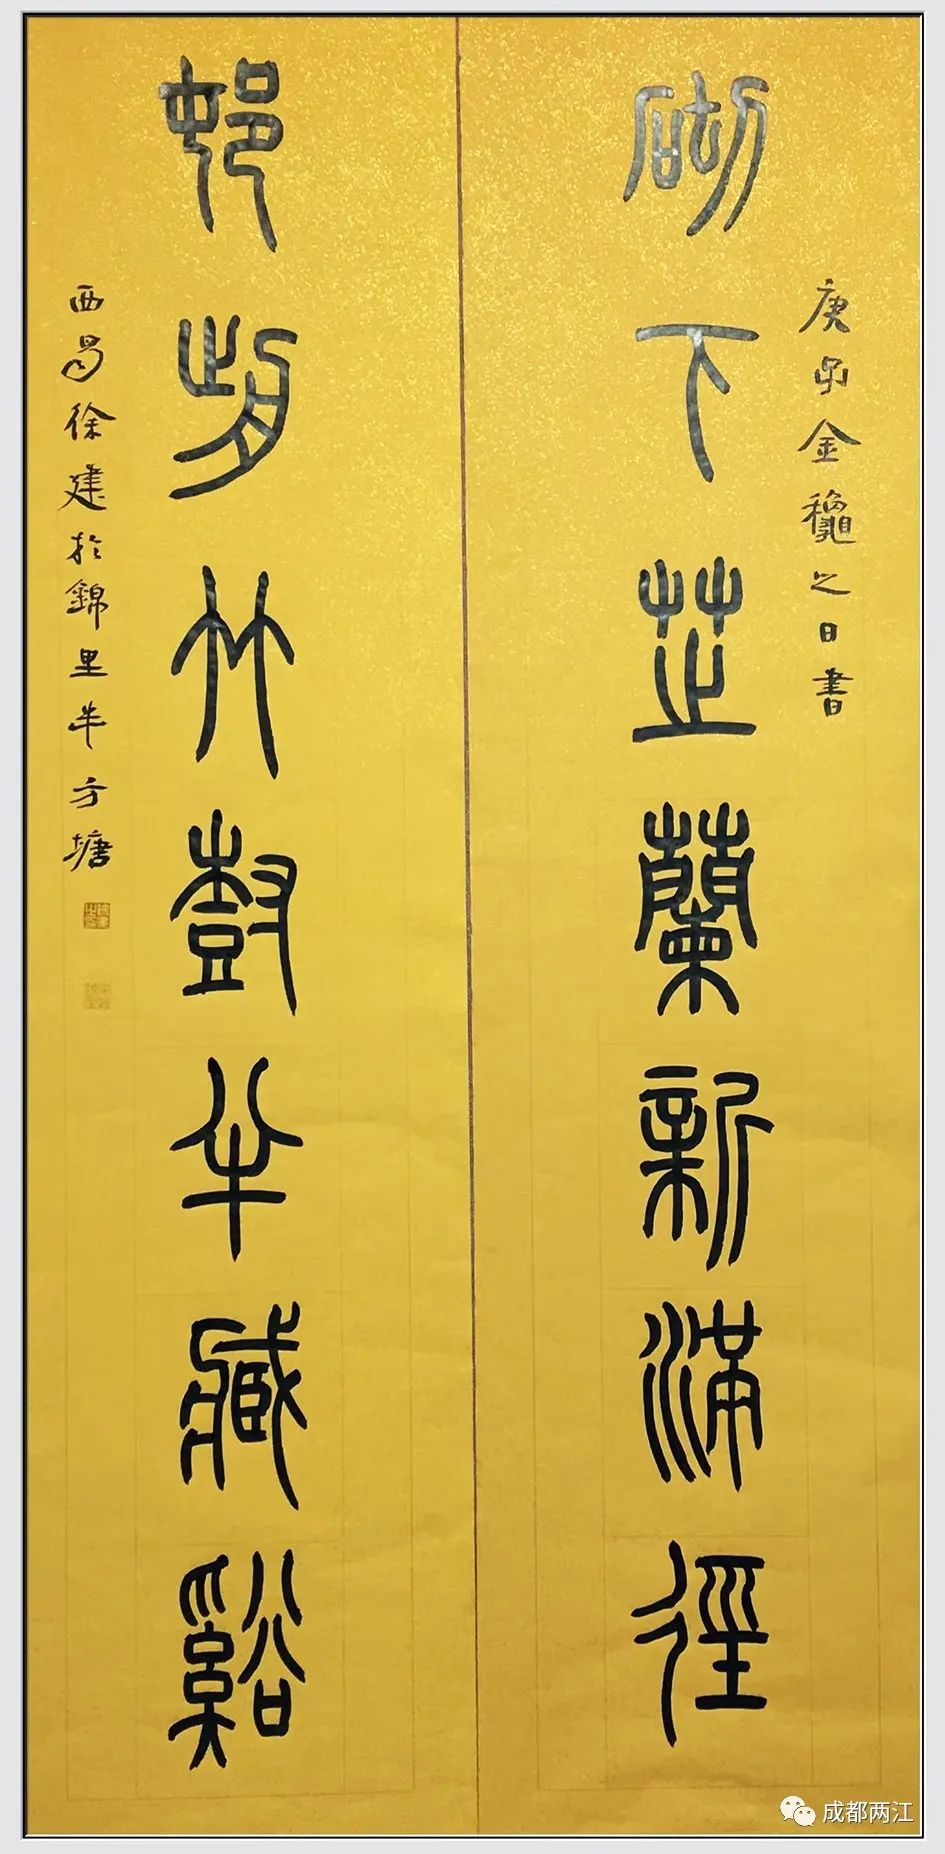 庚子金穐之日書
砌下芝蘭新滿徑
邨前竹樹半藏谿
西昌徐建於錦里半方塘
成都两江